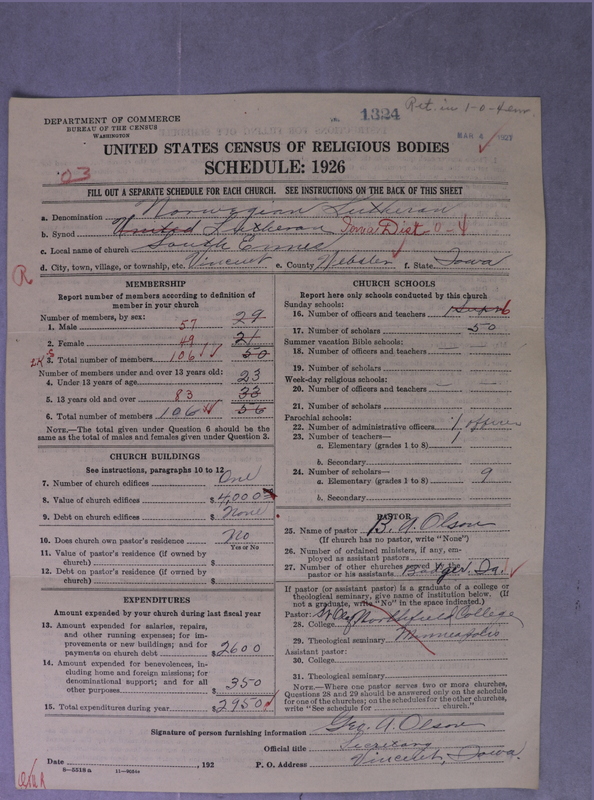 1324
Ret. in 1-0-4
MAR 4 1927
DEPARTMENT OF COMMERCE
BUREAU OF THE CENSUS
WASHINGTON
UNITED STATES CENSUS OF RELIGIOUS BODIES
SCHEDULE: 1926
03
FILL OUT A SEPARATE SCHEDULE FOR EACH CHURCH. SEE INSTRUCTIONS ON THE BACK OF THIS SHEET
a. Denomination Norwegian Lutheran
b. Synod United Lutheran Iowa Dist 0-4
c. Local name of church South
d. City, town, village, or township, etc. Vincent e. County Webster f. State Iowa
R
MEMBERSHIP
Report number of members according to definition of
member in your church
Number of members, by sex:
1. Male 57 29
2. Female 49 21
3. Total number of members 106 50
Number of members under and over 13 years old:
4. Under 13 years of age 23
5. 13 years old and over 83 33
6. Total number of members 106 56
NOTE.—The total given under Question 6 should be the
same as the total of males and females given under Question 3.
CHURCH BUILDINGS
See instructions, paragraphs 10 to 12
7. Number of church edifices One
8. Value of church edifices $4,000
9. Debt on church edifices $None
10. Does church own pastor's residence No
Yes or No
11. Value of pastor's residence (if owned by
church) $
12. Debt on pastor's residence (if owned by
church) $
EXPENDITURES
Amount expended by church during last fiscal year
13. Amount expended for salaries, repairs,
and other running expenses; for im-
provements or new buildings; and for
payments on church debt $2600
14. Amount expended for benevolences, in-
cluding home and foreign missions; for
denominational support; and for all
other purposes 350
15. Total expenditures during year $2950
CHURCH SCHOOLS
Report here only schools conducted by this church
Sunday schools:
16. Number of officers and teachers 6
17. Number of scholars 50
Summer vacation Bible schools:
18. Number of officers and teachers
19. Number of scholars
Week-day religious schools:
20. Number of officers and teachers
21. Number of scholars
Parochial schools:
22. Number of administrative officers 1 officer
23. Number of teachers— 1
a. Elementary (grades 1 to 8)
b. Secondary
24. Number of scholars—
a. Elementary (grades 1 to 8) 9
b. Secondary
PASTOR
25. Name of pastor B. A. Olson
(If church has no pastor, write "None")
26. Number of ordained ministers, if any, em-
ployed as assistant pastors
27. Number of other churches served by
pastor or his assistants Badger, Ia.
If pastor (or assistant pastor) is a graduate of a college or
theological seminary, give name of institution below. (If
not a graduate, write "No" in the space indicated.)
Pastor: St Olaf Northfield College
28. College
29. Theological seminary Minneapolis
Assistant pastor:
30. College
31. Theological seminary
NOTE.—Where one pastor serves two or more churches,
Questions 28 and 29 should be answered only on the schedule
for one of the churches; on the schedules for the other churches,
write "See schedule for church."
Signature of person furnishing information Geo. A. Olson
Official title Secretary
Date , 192 P. O. Address Vincent, Iowa.
8—5518 a